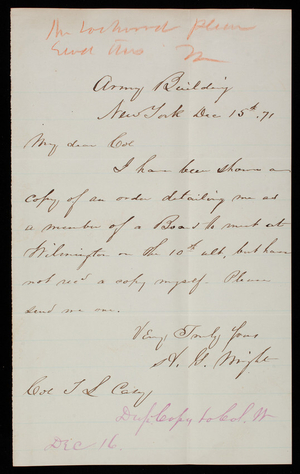 Mr Lockwood please
Send this
Army Building
New York Dec 15th, 71
My dear Col
I have been shown a
copy of an order detailing me as
a member of a Board to meet at
Wilmington on the 10th ult, but have
not rec'd a copy myself. Please
send me one.
Very Truly Yours
H. G. Wright
Col T L Casey
Dup Copy to Col. W
Dec 16.